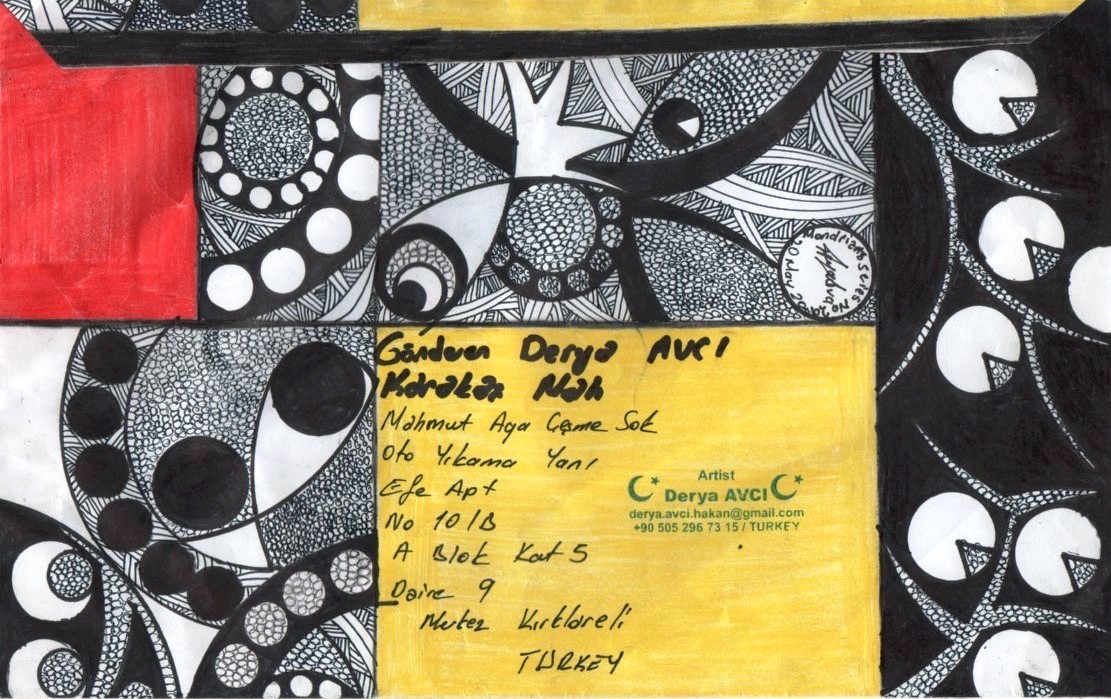 Gönderen Derya AVCI
Karakaş Mah
Mahmut Aga Çeşme Sok
Oto Yıkama Yanı
Efe Apt
No 10/B
A Blok Kat 5
Daire 9
Merkez Kırklareli
TURKEY
Artist
Derya AVCI
derya.avci.hakan@gmail.com
+90 505 296 73 15 / TURKEY